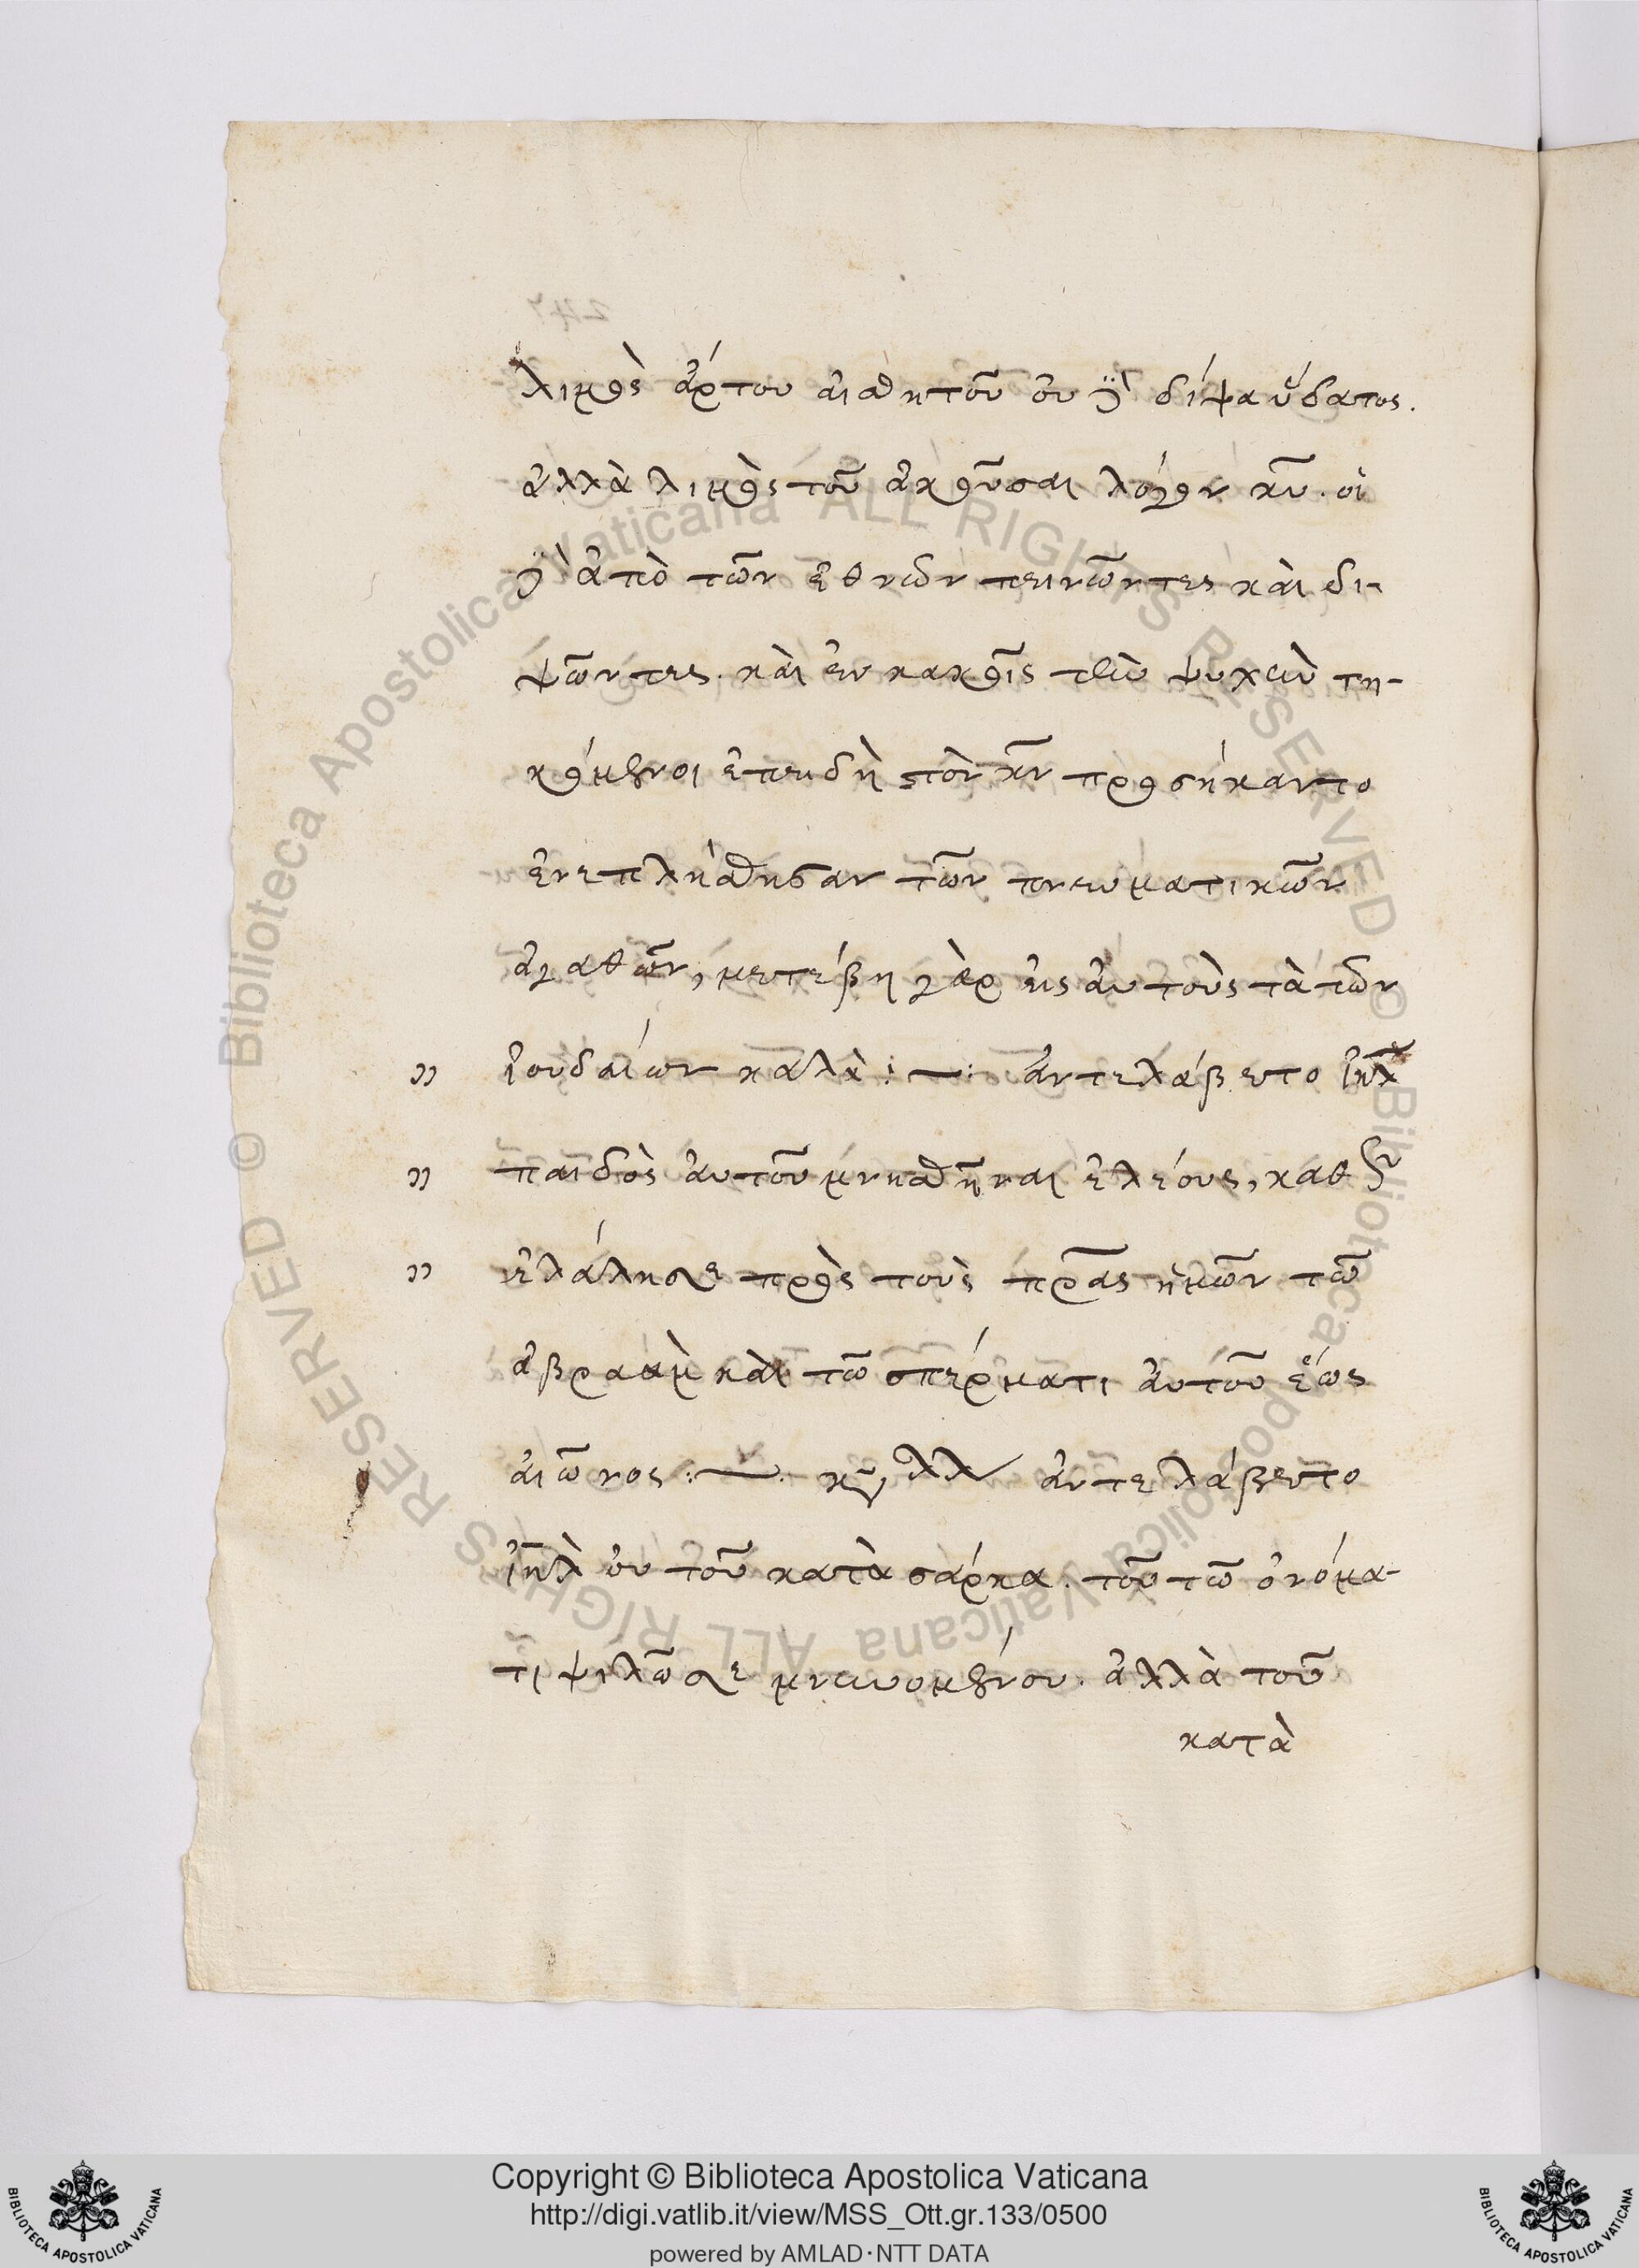 λιμὸς ἄρτου αἰσθητοῦ οὐδὲ δίψα ὕδατος.
ἀλλὰ λιμὸς τοῦ ἀκοῦσαι λόγον κυ̅. οἱ
δὲ ἀπὸ τῶν ἐθνῶν πεινῶντες καὶ δι-
ψῶντες. καὶ ἐν κακοῖς τὴν ψυχὴν τη-
κόμενοι ἐπειδὴ τὸν κν̅ προσήκαντο
ἐνεπλήσθησαν τῶν πνευματικῶν
ἀγαθῶν, μετέβη γὰρ εἰς αὐτοὺς τὰ τῶν
" ἰουδαίων καλά :~ ἀντελάβετο ἰη̅λ
" παιδὸς αὐτοῦ μνησθῆναι ἐλέους, καθὼς
" ἐλάλησε πρὸς τοὺς πρ̅ας ἡμῶν τῶ
ἀβραὰμ καὶ τῶ σπέρματι αὐτοῦ ἕως
αἰῶνος :~ ἀντελάβετο
ἰη̅λ οὐ τοῦ κατὰ σάρκα. τοῦ τῶ ὀνόμα-
τι ψιλῶς σεμνυνομένου. ἀλλὰ τοῦ
κατὰ
Copyright © Biblioteca Apostolica Vaticana
http://digi.vatlib.it/view/MSS_Ott.gr.133/0500
powered by AMLAD·NTT DATA
BIBLIOTECA APOSTOLICA VATICANA
BIBLIOTECA APOSTOLICA VATICANA
© Biblioteca Apostolica Vaticana ALL RIGHTS RESERVED © Biblioteca Apostolica Vaticana ALL RIGHTS RESERVED